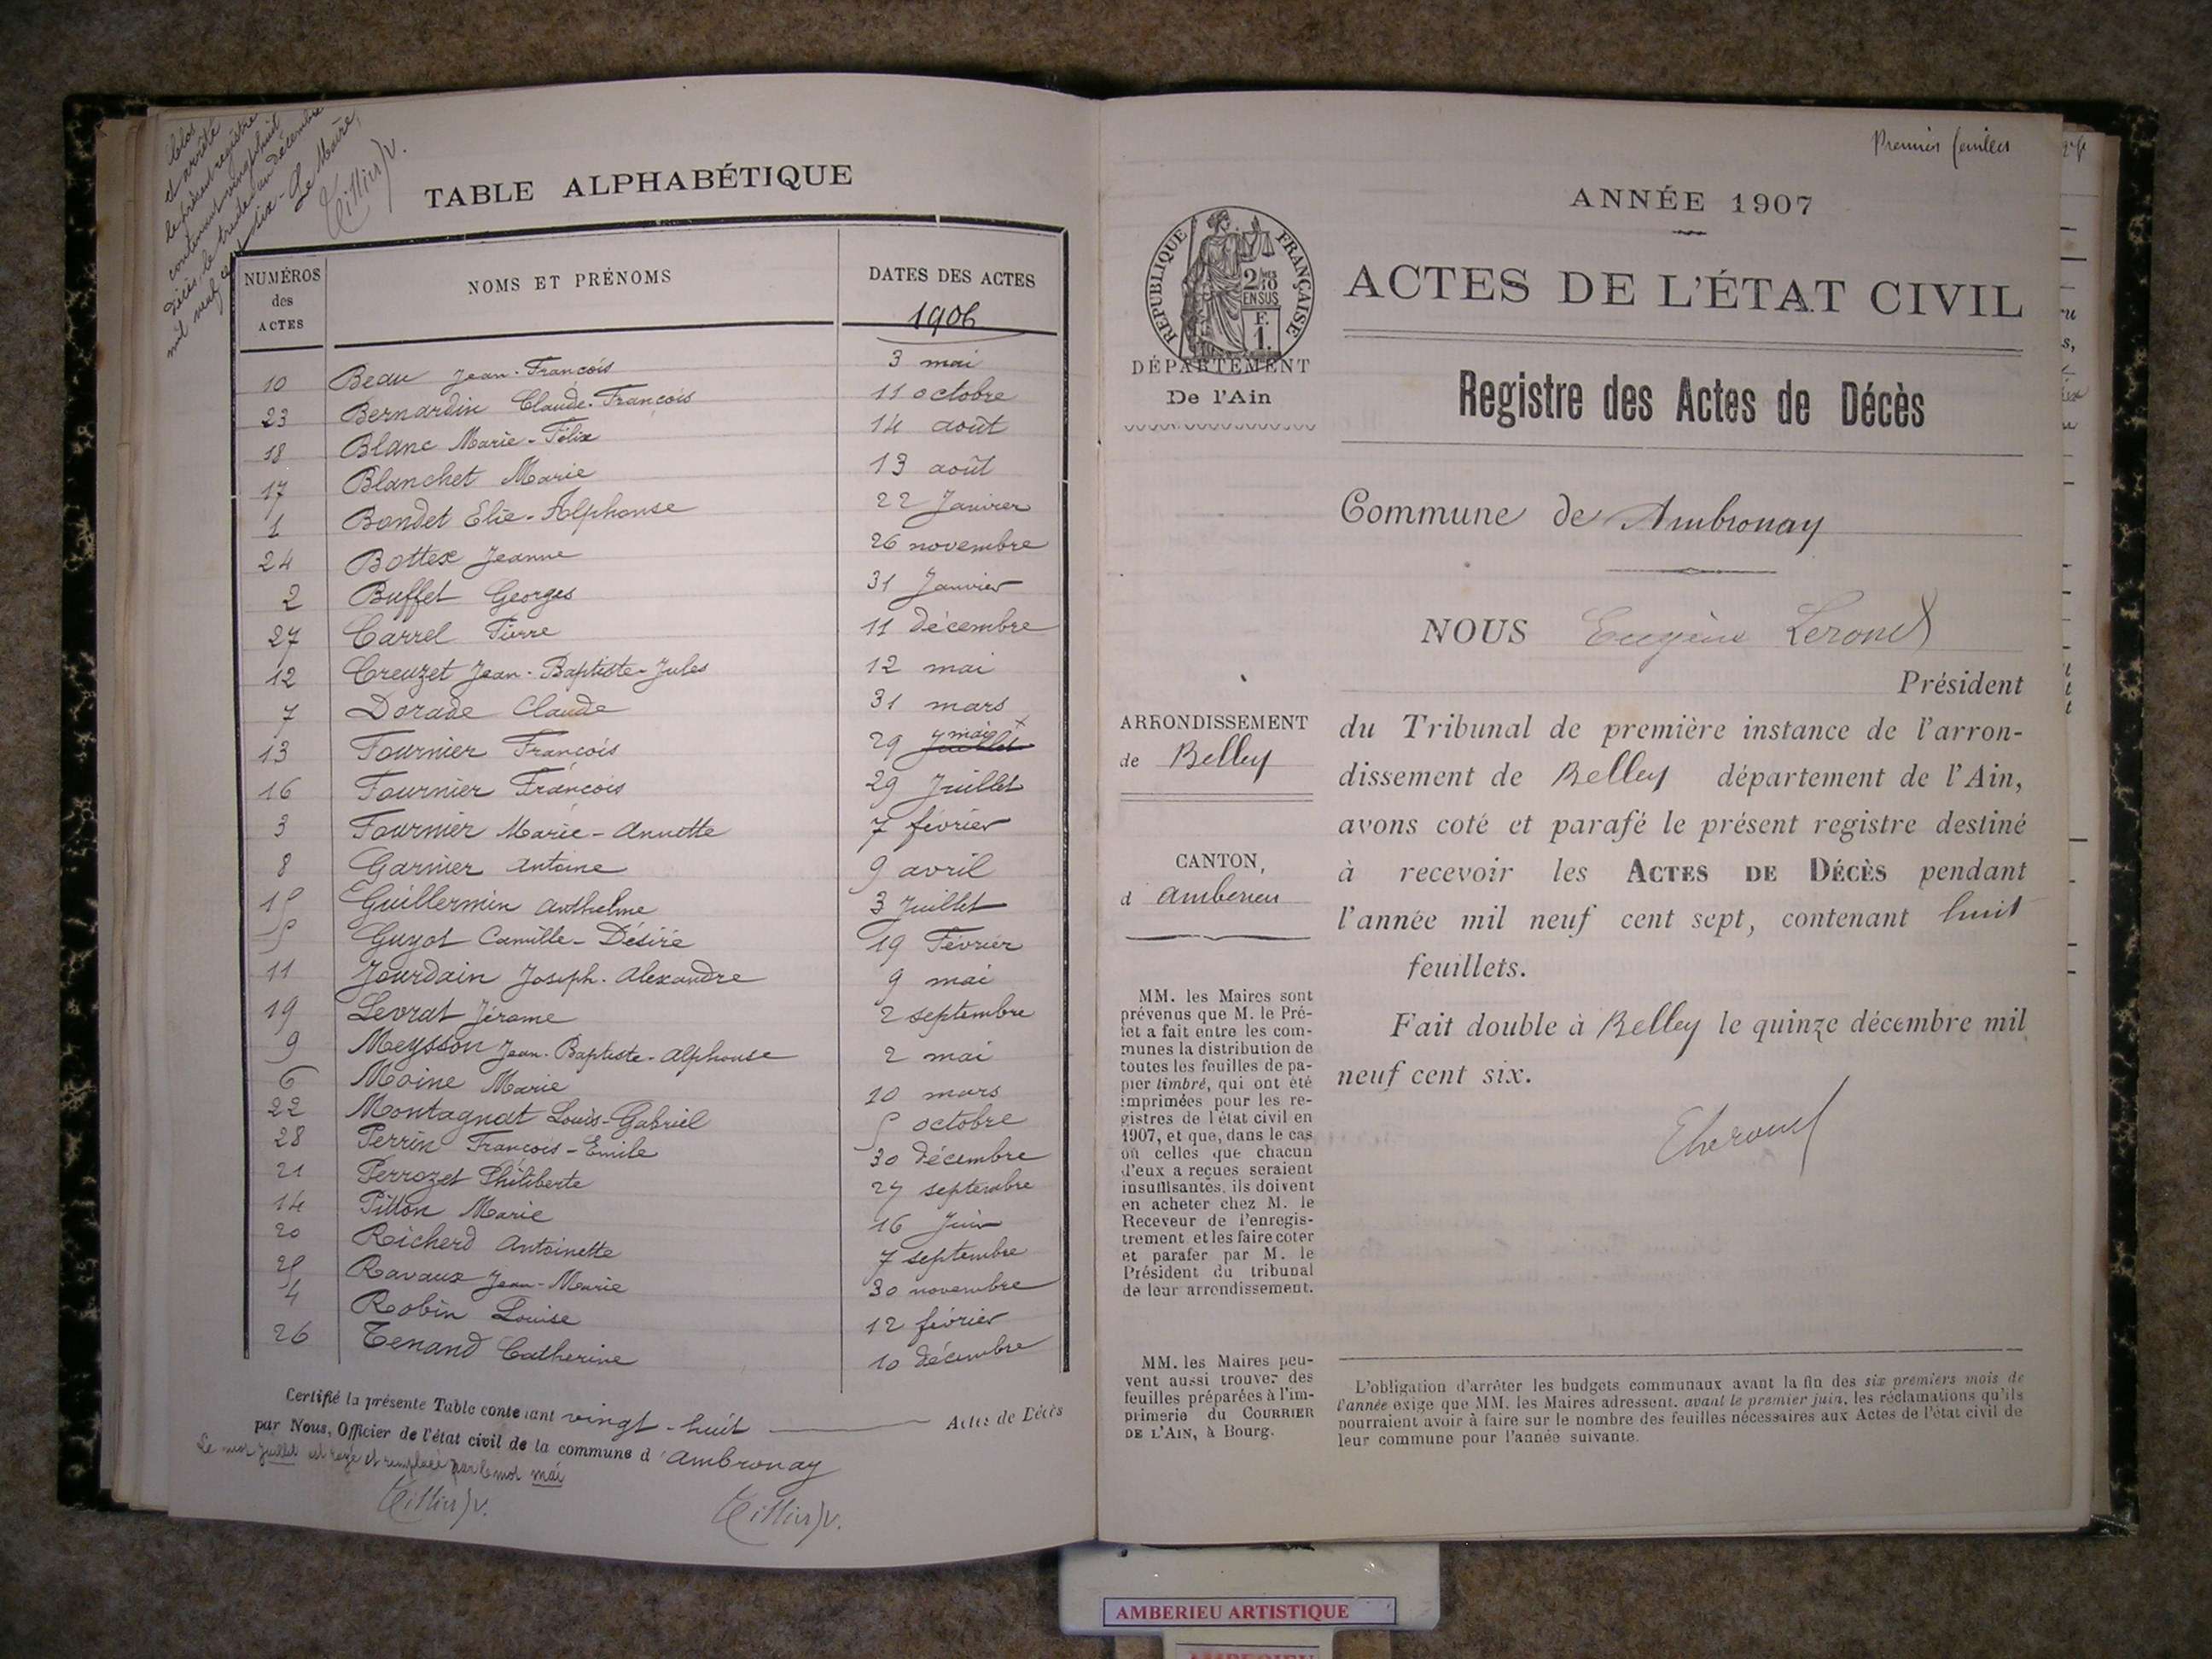 Clos
et arrêté
le présent registre
contenant vingt huit
décès, le trente un décembre
mil neuf cent six - Le Maire,
Tillier)v.
TABLE ALPHABÉTIQUE
NUMÉROS des ACTES
NOMS ET PRÉNOMS
DATES DES ACTES
1906
10 Beau Jean-François 3 mai
23 Bernardin Claude-François 11 octobre
18 Blanc Marie-Félix 14 août
17 Blanchet Marie 13 août
1 Bondet Elie-Alphonse 22 Janvier
24 Bottex Jeanne 26 novembre
2 Buffet Georges 31 Janvier
27 Carrel Pierre 11 décembre
12 Creuzet Jean-Baptiste-Jules 12 mai
7 Dorade Claude 31 mars
13 Fournier François 29 Juillet mai x
16 Fournier François 29 Juillet
3 Fournier Marie-Annette 7 février
8 Garnier Antoine 9 avril
15 Guillermin Anthelme 3 Juillet
5 Guyot Camille-Désiré 19 Février
11 Jourdain Joseph-Alexandre 9 mai
19 Levrat Jérome 2 septembre
9 Meysson Jean-Baptiste-Alphonse 2 mai
6 Moine Marie 10 mars
22 Montagnat Louis-Gabriel 5 octobre
28 Perrin François-Emile 30 décembre
21 Perrozet Philiberte 27 septembre
14 Pitton Marie 16 Juin
20 Richerd Antoinette 7 septembre
25 Ravaux Jean-Marie 30 novembre
4 Robin Louise 12 février
26 Tenand Catherine 10 décembre
Certifié la présente Table contenant vingt-huit Actes de Décès
par Nous, Officier de l'état civil de la commune d'Ambronay
Le mot juillet est rayé et remplacé par le mot mai
Tillier)v. Tillier)v.
Premier feuillet
ANNÉE 1907
RÉPUBLIQUE FRANÇAISE
2/10
EN SUS
F.
1.
DÉPARTEMENT
De l'Ain
ACTES DE L'ÉTAT CIVIL
Registre des Actes de Décès
Commune de Ambronay
NOUS Eugène Leroud
Président
du Tribunal de première instance de l'arron-
dissement de Belley département de l'Ain,
avons coté et parafé le présent registre destiné
à recevoir les ACTES DE DÉCÈS pendant
l'année mil neuf cent sept, contenant huit
feuillets.
Fait double à Belley le quinze décembre mil
neuf cent six.
ARRONDISSEMENT
de Belley
CANTON,
d'Ambérieu
MM. les Maires sont
prévenus que M. le Pré-
fet a fait entre les com-
munes la distribution de
toutes les feuilles de pa-
pier timbré, qui ont été
imprimées pour les re-
gistres de l'état civil en
1907, et que, dans le cas
où celles que chacun
d'eux a reçues seraient
insuffisantes, ils doivent
en acheter chez M. le
Receveur de l'enregis-
trement et les faire coter
et parafer par M. le
Président du tribunal
de leur arrondissement.
MM. les Maires peu-
vent aussi trouver des
feuilles préparées à l'im-
primerie du COURRIER
DE L'AIN, à Bourg.
L'obligation d'arrêter les budgets communaux avant la fin des six premiers mois de
l'année exige que MM. les Maires adressent, avant le premier juin, les réclamations qu'ils
pourraient avoir à faire sur le nombre des feuilles nécessaires aux Actes de l'état civil de
leur commune pour l'année suivante.
AMBERIEU ARTISTIQUE
AMBERIEU